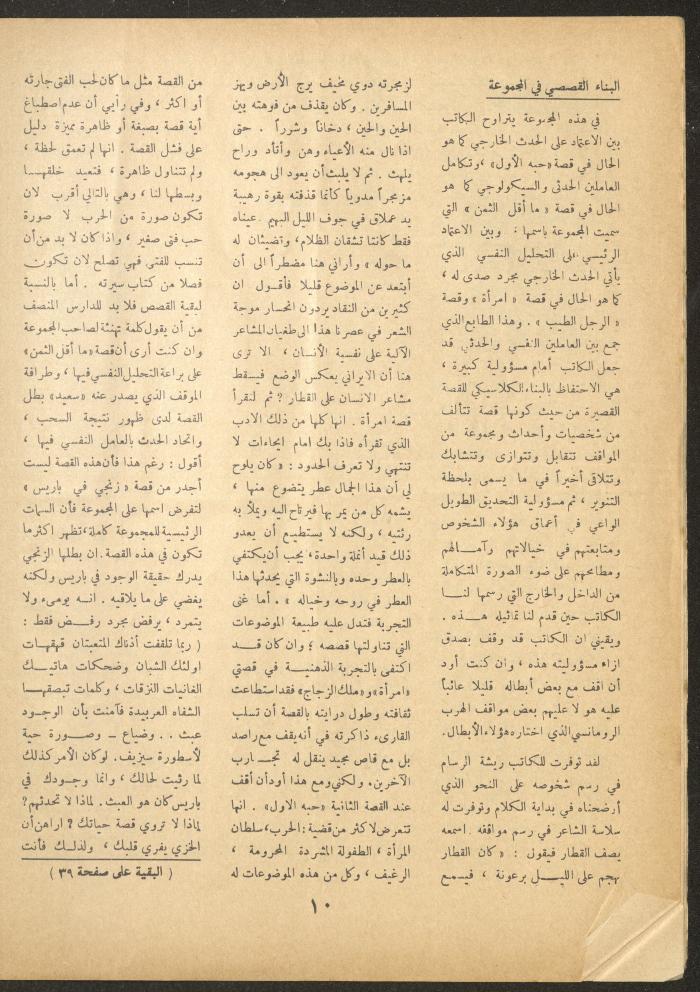 البناء القصصي في المجموعة
في هذه المجموعة يتراوح الكاتب
بين الاعتماد على الحدث الخارجي كما هو
الحال في قصة «حبه الأول» ، وتكامل
العاملين الحدثي والسيكولوجي كما هو
الحال في قصة « ما أقل الثمن » التي
سميت المجموعة باسمها ؛ وبين الاعتماد
الرئيسي على التحليل النفسي الذي
يأتي الحدث الخارجي مجرد صدى له ،
كما هو الحال في قصة « امرأة » وقصة
« الرجل الطيب » . وهذا الطابع الذي
جمع بين العاملين النفسي والحدثي قد
جعل الكاتب أمام مسؤولية كبيرة ،
هي الاحتفاظ بالبناء الكلاسيكي للقصة
القصيرة من حيث كونها قصة تتألف
من شخصيات وأحداث ومجموعة من
المواقف تتقابل وتتوازى وتتشابك
وتتلاق أخيراً في ما يسمى بلحظة
التنوير ، ثم مسؤولية التحديق الطويل
الواعي في أعماق هؤلاء الشخوص
ومتابعتهم في خيالاتهم وآمالهم
ومطامحهم على ضوء الصورة المتكاملة
من الداخل والخارج التي رسمها لنا
الكاتب حين قدم لنا تماثيله هذه .
ويقيني ان الكاتب قد وقف بصدق
ازاء مسؤوليته هذه ، وان كنت أود
أن اقف مع بعض أبطاله قليلا عاتباً
عليه هو لا عليهم بعض مواقف الهرب
الرومانسي الذي اختاره هؤلاء الأبطال.
لقد توفرت للكاتب ريشة الرسام
في رسم شخوصه على النحو الذي
أوضحناه في بداية الكلام وتوفرت له
سلاسة الشاعر في رسم مواقفه . اسمعه
يصف القطار فيقول : « كان القطار
يهجم على الليل برعونة ، فيسمع
لزمجرته دوي مخيف يرج الأرض ويهز
المسافرين . وكان يقذف من فوهته بين
الحين والحين ، دخاناً وشرراً . حتى
اذا نال منه الأعياء وهن وأتأد وراح
يلهث . ثم لا يلبث أن يعود الى هجومه
مزمجراً مدوياً كأنما قذفته بقوة رهيبة
يد عملاق في جوف الليل البهيم . عيناه
فقط كانتا تشقان الظلام ، وتضيئان له
ما حوله » وأراني هنا مضطراً الى أن
أبتعد عن الموضوع قليلا فأقول ان
كثيرين من النقاد يردون انحسار موجة
الشعر في عصرنا هذا الى طغيان المشاعر
الآلية على نفسية الأنسان ، الا ترى
هنا أن الايراني يعكس الوضع فيسقط
مشاعر الانسان على القطار ? ثم لنقرأ
قصة امرأة . انها كلها من ذلك الادب
الذي تقرأه فاذا بك امام ايحاءات لا
تنتهي ولا تعرف الحدود : « كان يلوح
لي أن هذا الجمال عطر يتضوع منها ،
يشمه كل من يمر بها فيرتاح اليه ويملأ به
رئتيه ، ولكنه لا يستطيع أن يعدو
ذلك قيد أنملة واحدة، يجب أن يكتفي
بالعطر وحده وبالنشوة التي يحدثها هذا
العطر في روحه وخياله » . أما غنى
التجربة فتدل عليه طبيعة الموضوعات
التي تناولتها قصصه ؛ وان كان قد
اكتفى بالتجربة الذهنية في قصتي
«امرأة» و«ملك الزجاج» فقد استطاعت
ثقافته وطول درايته بالقصة أن تسلب
القارىء ذاكرته في أنه يقف مع راصد
بل مع قاص مجيد ينقل له تجارب
الآخرين. ولكني ومع هذا أود أن أقف
عند القصة الثانية «حبه الاول» . انها
تتعرض لاكثر من قضية : الحرب، سلطان
المرأة ، الطفولة المشردة المحرومة ،
الرغيف ، وكل من هذه الموضوعات له
من القصة مثل ما كان لحب الفتى جارته
أو اكثر ، وفي رأيي أن عدم اصطباغ
أية قصة بصبغة أو ظاهرة مميزة دليل
على فشل القصة . انها لم تعمق لحظة ،
ولم تتناول ظاهرة ، فتعيد خلقها
وبسطها لنا ، وهي بالتالي أقرب لان
تكون صورة من الحرب لا صورة
حب فتى صغير ، واذا كان لا بد من أن
تنسب للفتى فهي تصلح لان تكون
فصلا من كتاب سيرته . أما بالنسبة
لبقية القصص فلا بد للدارس المنصف
من أن يقول كلمة تهنئة لصاحب المجموعة
وان كنت أرى أن قصة «ما أقل الثمن»
على براعة التحليل النفسي فيها ، وطرافة
الموقف الذي يصدر عنه «سعيد» بطل
القصة لدى ظهور نتيجة السحب ،
واتحاد الحدث بالعامل النفسي فيها ،
أقول : رغم هذا فأن هذه القصة ليست
أجدر من قصة « زنجي في باريس »
لتفرض اسمها على المجموعة فأن السمات
الرئيسية للمجموعة كاملة، تظهر اكثر ما
تكون في هذه القصة . ان بطلها الزنجي
يدرك حقيقة الوجود في باريس ولكنه
يغضي على ما يلاقيه . انه يومىء ولا
يتمرد ، يرفض مجرد رفض فقط :
( ربما تلقفت أذناك المتعبتان قهقهات
اولئك الشبان وضحكات هاتيك
الغانيات النزقات ، وكلمات تبصقها
الشفاه العربيدة فآمنت بأن الوجود
عبث .. وضياع ـ وصورة حية
لأسطورة سيزيف. لو كان الأمر كذلك
لما رثيت لحالك ، وانما وجودك في
باريس كان هو العبث. لماذا لا تحدثهم ?
لماذا لا تروي قصة حياتك ? اراهن أن
الخزي يفري قلبك ، ولذلك فأنت
( البقية على صفحة ٣٩ )
١٠